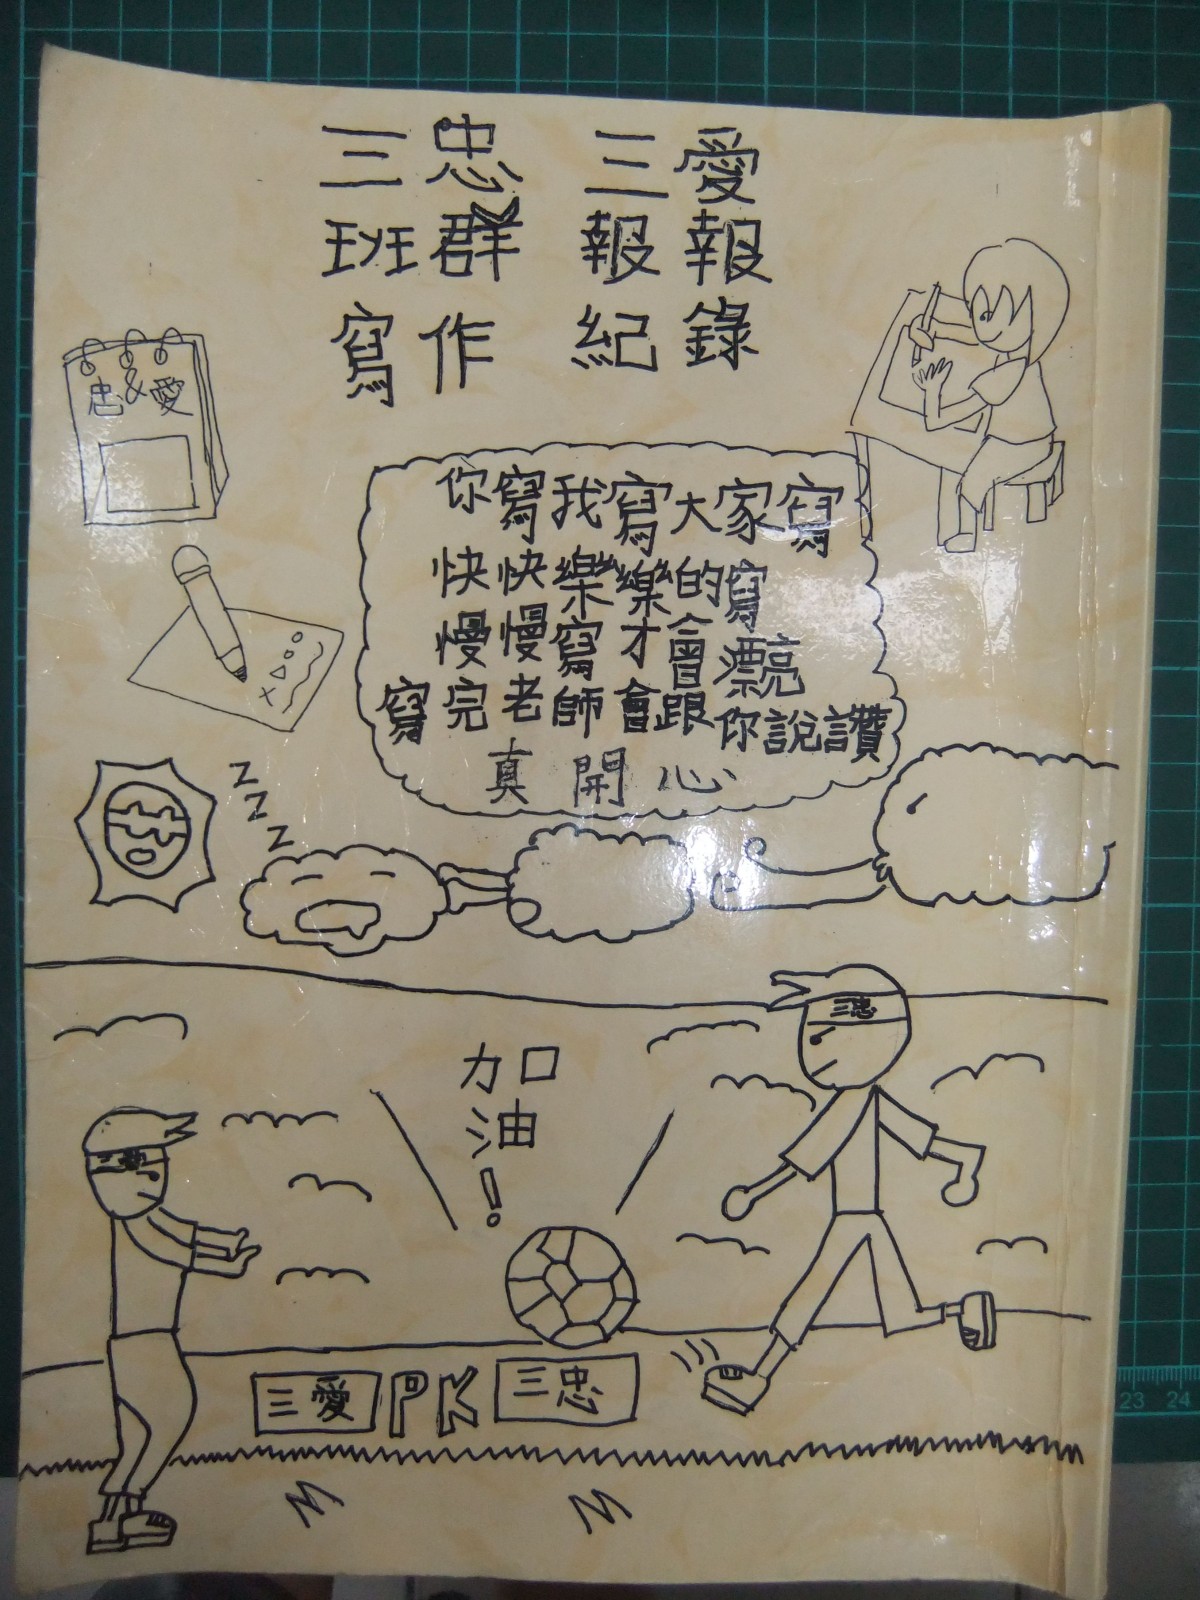 三忠 三愛
班群 報報
寫作 紀錄
忠&愛
你寫我寫大家寫
快快樂樂的寫
慢慢寫才會漂亮
寫完老師會跟你說讚
真開心
z
z
z
三忠
加
油
!
三愛 PK 三忠